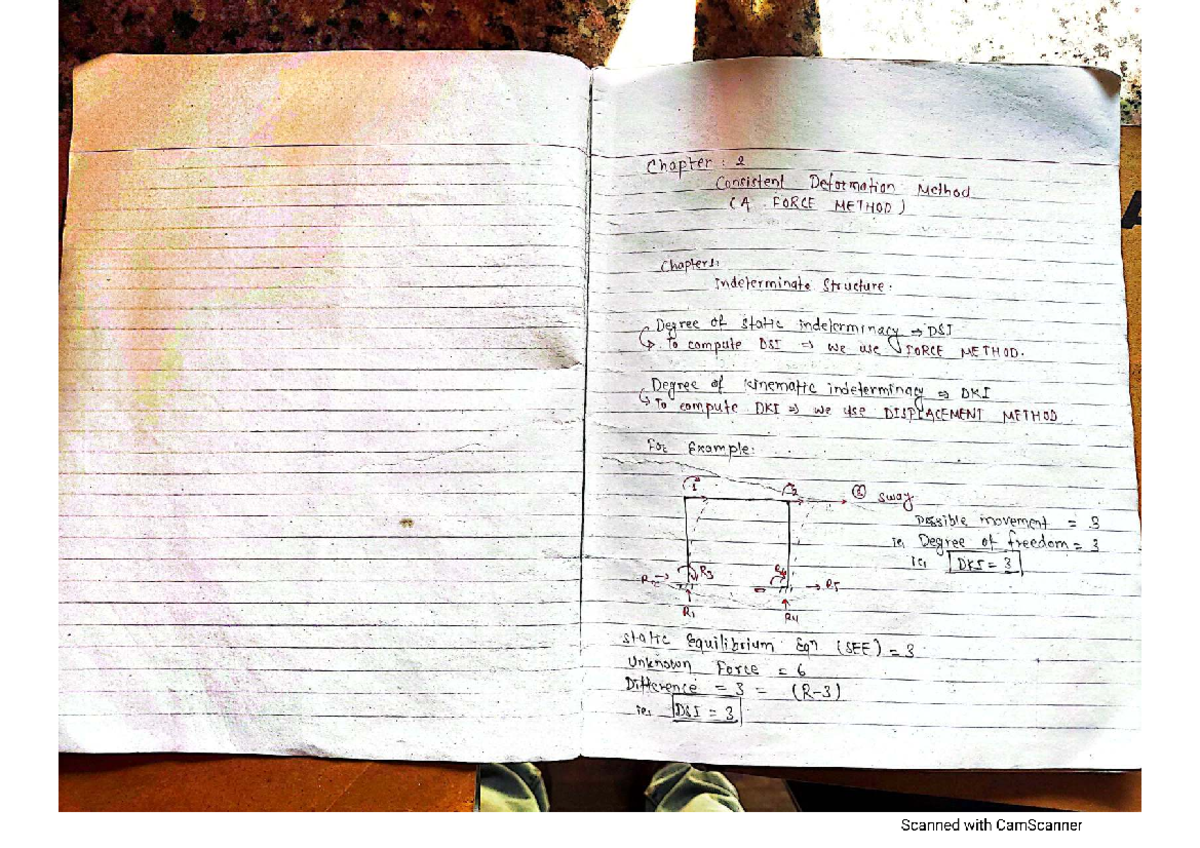 Chapter : 2
Consistent Deformation Method
(A FORCE METHOD)
Chapter 1:
Indeterminate Structure.
Degree of static indeterminacy ⇒ DSI
↳ To compute DSI ⇒ we use FORCE METHOD.
Degree of kinematic indeterminacy ⇒ DKI
↳ To compute DKI ⇒ we use DISPLACEMENT METHOD
For Example:
1
2
③ sway
possible movement = 3
ie, Degree of freedom = 3
ie, DKI = 3
R3
R5
R1
R4
static Equilibrium Eqn (SEE) = 3
Unknown Force = 6
Difference = 3 = (R-3)
ie, DSI = 3
Scanned with CamScanner